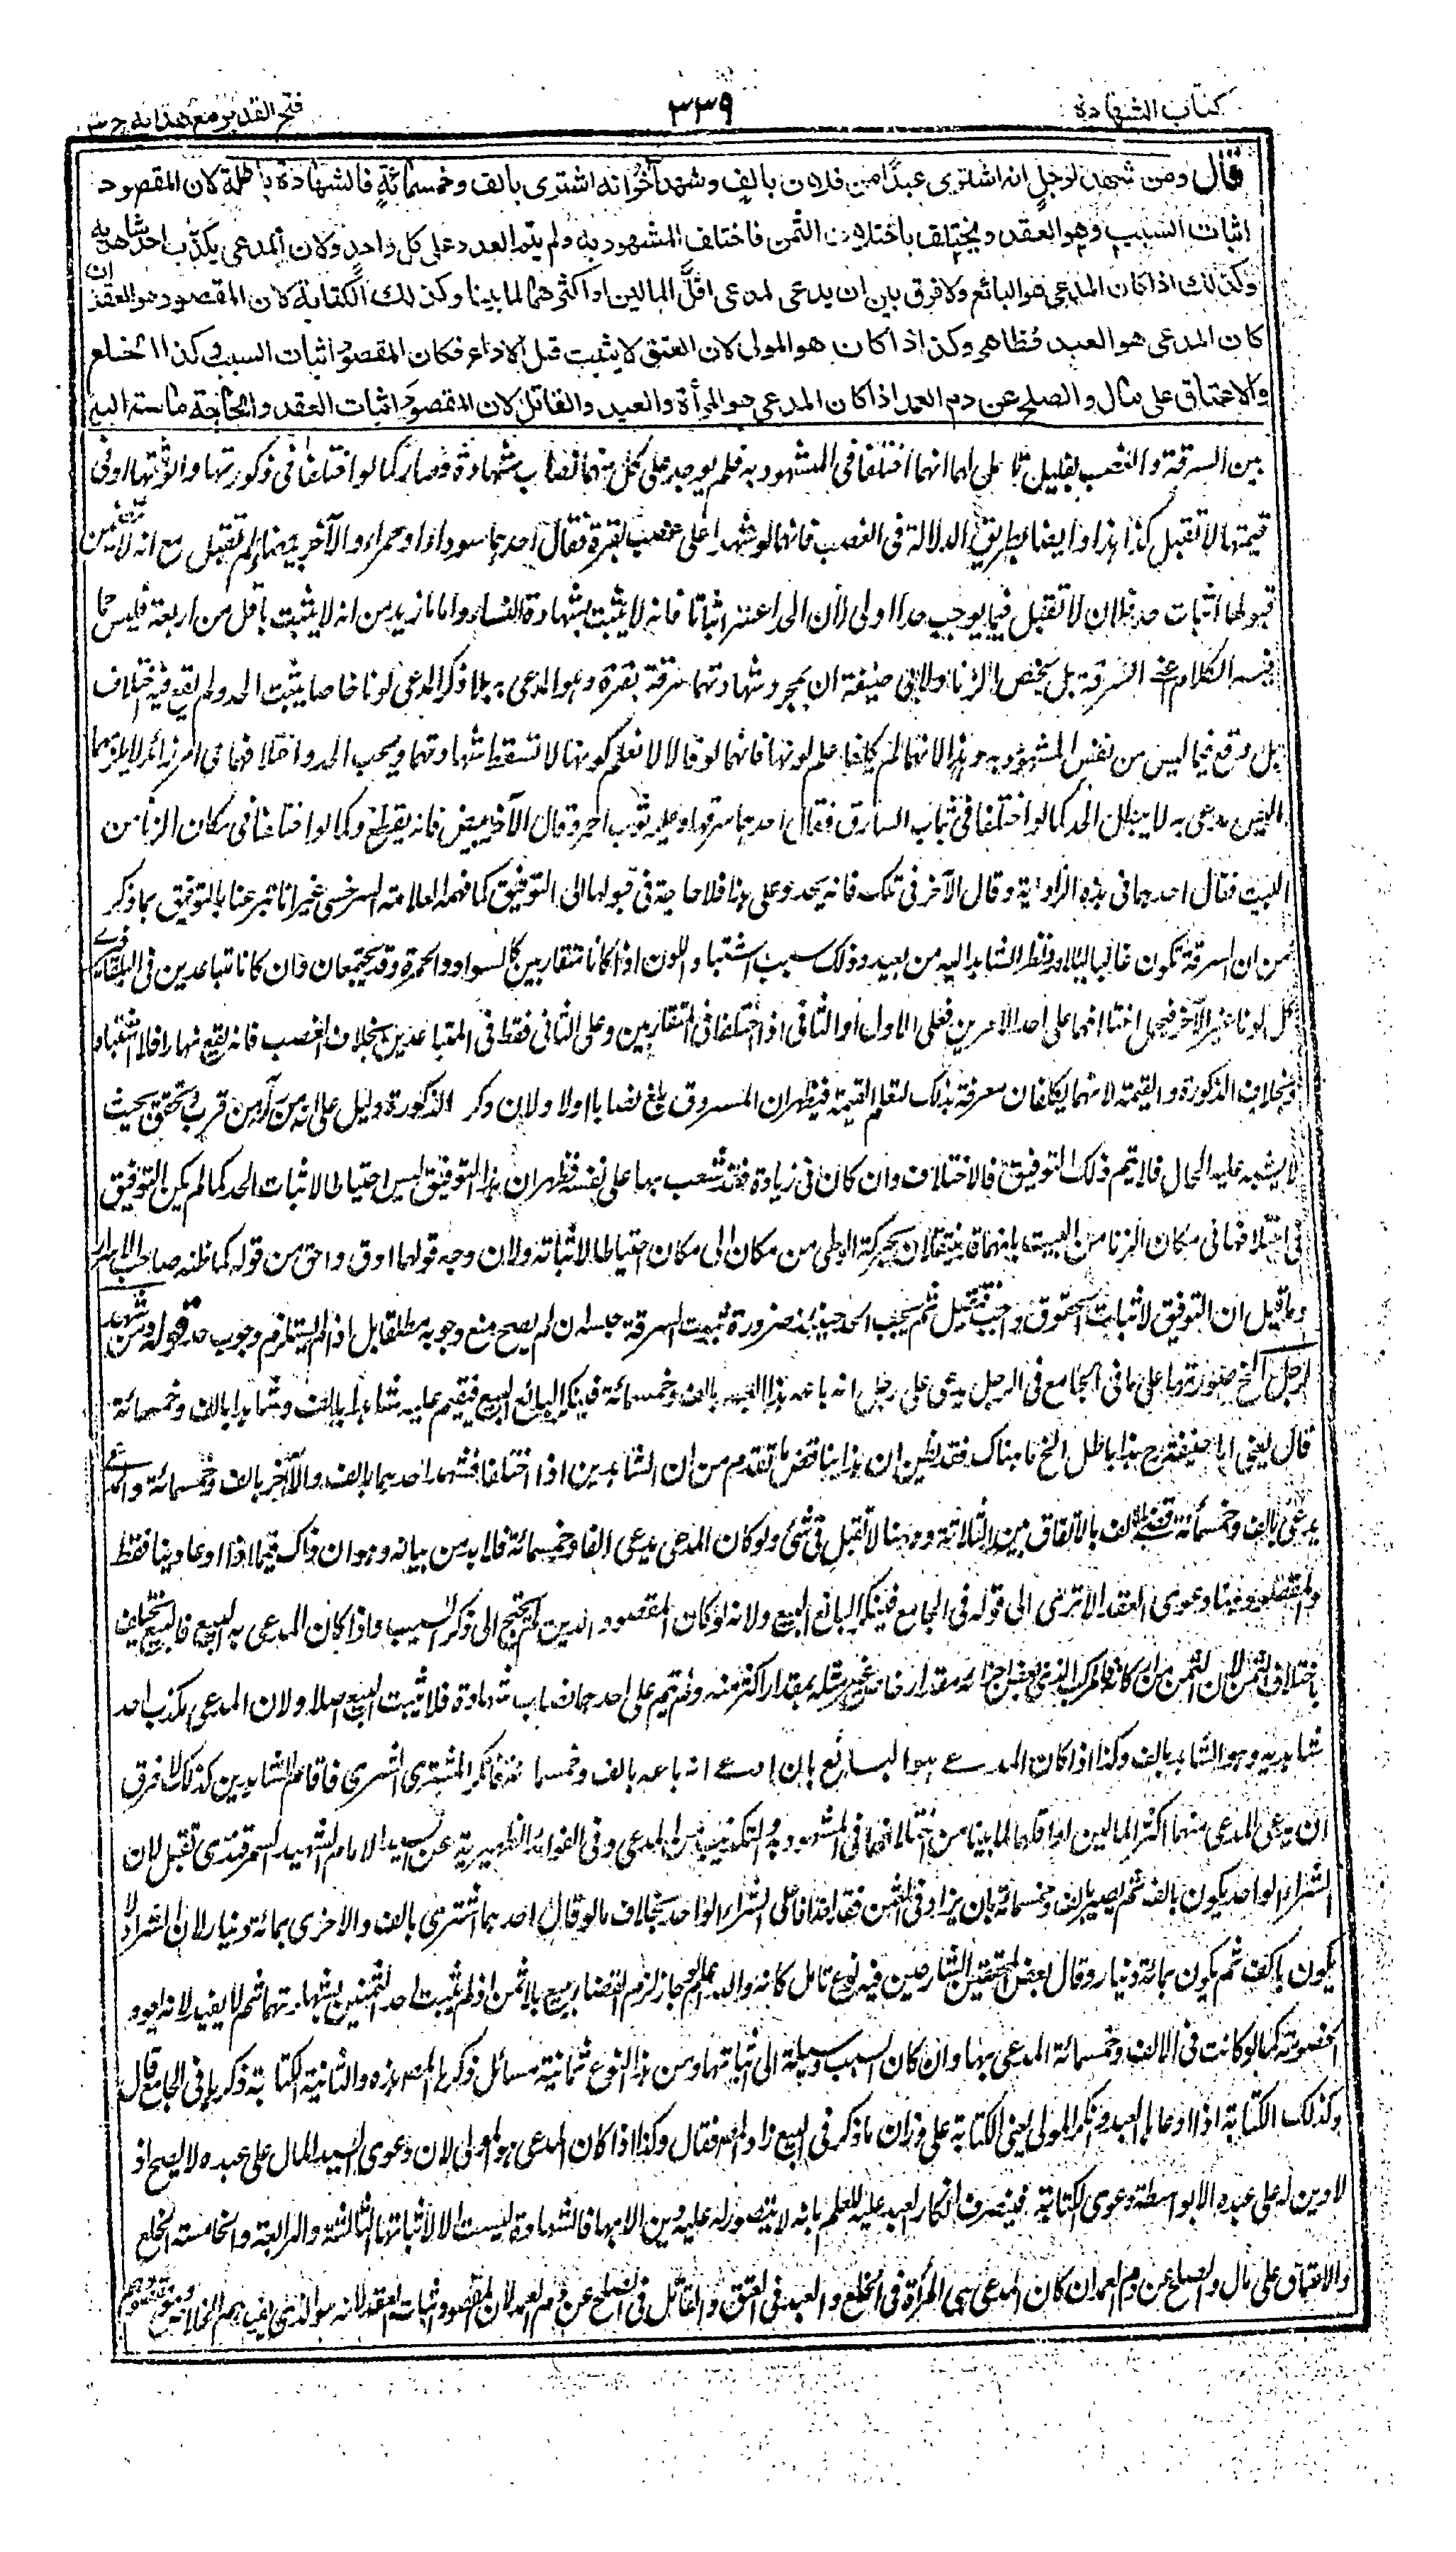 كتاب الشهادة
٣٣٩
فتح القدير مع هدايه ج ٣
قال ومن شهد لرجل انه اشترى عبدا من فلان بالف وشهد آخر انه اشترى بالف وخمسمائة فالشهادة باطلة لان المقصود
اثبات السبب وهو العقد ويختلف باختلاف الثمن فاختلف المشهود به ولم يتم العدد على كل واحد ولان المدعي يكذب احد شاهديه
وكذلك اذا كان المدعي هو البائع ولا فرق بين ان يدعي المدعي اقل المالين او اكثرهما لما بينا وكذلك الكتابة لان المقصود هو العقد ان
كان المدعي هو العبد فظاهر وكذا اذا كان هو المولى لان العتق لا يثبت قبل الاداء فكان المقصود اثبات السبب وكذا الخلع
والاعتاق على مال والصلح عن دم العمد اذا كان المدعي هو المرأة والعبد والقاتل لان المقصود اثبات العقد والحاجة ماسة اليه
بين السرقة والغصب بقليل تأمل لهما انهما اختلفا في المشهود به فلم يوجد على كل منهما نصاب شهادة فصار كما لو اختلفا في ذكورتها وانوثتها او في
قيمتها لا تقبل كذا هذا وايضا بطريق الدلالة في الغصب فانهما لو شهدا على غصب بقرة فقال احدهما سوداء او حمراء والآخر بيضاء لم تقبل مع انه لا
قبولها اثبات حد فلان لا تقبل فيما يوجب حدا اولى لان الحد اعسر اثباتا فانه لا يثبت بشهادة النساء واما ما زيد من انه لا يثبت باقل من اربعة فليس مما
فيه الكلام السرقة بل يخص الزنا ولابي حنيفة ان بمجرد شهادتهما سرقة بقرة وهو المدعى به بلا ذكر المدعي لونا خاصا يثبت الحد ولم يقع فيه اختلاف
بل وقع فيما ليس من نفس المشهود به وهذا لانهما لم يكلفا علم لونها فانهما لو قالا لا نعلم لونها لا تسقط شهادتهما ويجب الحد واختلافهما في امر زائد لا يلزمهما
ليس مدعى به لا يبطل الحد كما لو اختلفا في ثياب السارق فقال احدهما سرقها وعليه ثوب احمر وقال الآخر ابيض فانه يقطع وكما لو اختلفا في مكان الزنا من
البيت فقال احدهما في هذه الزاوية وقال الآخر في تلك فانه يحد وعلى هذا فلا حاجة في قبولها الى التوفيق كما فهمه العلامة السرخسي غير انا تبرعنا بالتوفيق بما ذكر
من ان السرقة تكون غالبا ليلا ونظر الشاهد اليه من بعيد وذلك سبب اشتباه اللون اذا كانا متقاربين كالسواد والحمرة وقد يجتمعان وان كانا متباعدين في
كل لونا غير الآخر فيحمل اختلافهما على احد الامرين فعلى الاول او الثاني اذا اختلفا في المتقاربين وعلى الثاني فقط في المتباعدين بخلاف الغصب فانه يقع نهارا فلا اشتباه
وبخلاف الذكورة والقيمة لانهما يكلفان معرفة ذلك لتعلم القيمة فيظهر ان المسروق بلغ نصابا اولا ولان ذكر الذكورة دليل على انه من قرب وتحقق بحيث
لا يشتبه عليه الحال فلا يتم ذلك التوفيق فالاختلاف وان كان في زيادة فقد شعب بها على نفسه فظهر ان هذا التوفيق ليس احتياطا لاثبات الحد كما لم يكن التوفيق
في اختلافهما في مكان الزنا من البيت بانهما قد ينتقلان بحركة الوطي من مكان الى مكان احتياطا لاثباته ولان وجه قولهما ادق واحق من قوله كما ظنه صاحب الاسرار
وما قيل ان التوفيق لاثبات الحقوق واجب فتقبل ثم يجب الحد حينئذ ضرورة ثبوت السرقة ان لم يصح منع وجوبه مطلقا بل اذا لم يستلزم وجوب حد قوله ومن شهد
لرجل الخ صورتها على ما في الجامع في الرجل يدعي على رجل انه باعه هذا العبد بالف وخمسمائة فينكر البائع البيع فيقيم عليه شاهدا بالف وشاهدا بالف وخمسمائة
قال يعني ابا حنيفة رح هذا باطل الخ ما هناك فقد يظن ان هذا يناقض ما تقدم من ان الشاهدين اذا اختلفا فشهد احدهما بالف والآخر بالف وخمسمائة والمدعي
يدعي بالف وخمسمائة قضى بالف بالاتفاق بين الثلاثة وههنا لا تقبل في شيء ولو كان المدعي يدعي الفا وخمسمائة فلا بد من بيانه وهو ان ذاك فيما اذا ادعى دينا فقط
والمقصود هنا دعوى العقد الا ترى الى قوله في الجامع فينكر البائع البيع ولانه لو كان المقصود الدين لم يحتج الى ذكر السبب واذا كان المدعى به البيع فالبيع يختلف
باختلاف الثمن لان الثمن من اركانه مقدار خاص غير مثله بمقدار اكثر منه ولم يتم على احدهما نصاب شهادة فلا يثبت البيع اصلا ولان المدعي يكذب احد
شاهديه وهو الشاهد بالف وكذا اذا كان المدعي هو البائع بان ادعى انه باعه بالف وخمسمائة فانكر المشتري الشرى فاقام الشاهدين كذلك لا فرق
ان يدعي المدعي منهما اكثر المالين او اقلهما لما بينا من اختلافهما في المشهود به والتكذيب من المدعي وفي الفوائد الظهيرية عن السيد الامام الشهيد السمرقندي تقبل لان
الشراء الواحد يكون بالف ثم يصير بالف وخمسمائة بان يزاد في الثمن فقد اتفقا على الشراء الواحد بخلاف ما لو قال احدهما اشترى بالف والاخرى بمائة دينار لان الشراء لا
يكون بالف ثم يكون بمائة دينار وقال بعض المحققين الشارحين فيه نوع تامل كانه والله اعلم لو جاز لزم القضاء ببيع بلا ثمن اذ لم يثبت احد الثمنين بشهادتهما ثم لا يفيد لانه يعود
الخصومة كما لو كانت في الالف وخمسمائة المدعى بها وان كان السبب وسيلة الى اثباتها ومن هذا النوع ثمانية مسائل ذكر المص هذه والثانية الكتابة ذكرها في الجامع قال
وكذلك الكتابة اذا ادعاها العبد وانكر المولى يعني الكتابة على وزان ما ذكر في البيع زاد المص فقال وكذا اذا كان المدعي هو المولى لان دعوى السيد المال على عبده لا يصح اذ
لا دين له على عبده الا بواسطة دعوى الكتابة فينصرف انكار العبد عليه للعلم بانه لا يتصور له عليه دين الا بها فالشهادة ليست الا لاثباتها الثالثة والرابعة والخامسة الخلع
والاعتاق على مال والصلح عن دم العمد ان كان المدعي هي المرأة في الخلع والعبد في العتق والقاتل في الصلح عن دم العمد لان المقصود اثبات العقد لانه هو الذي يفيدهم الخلاص